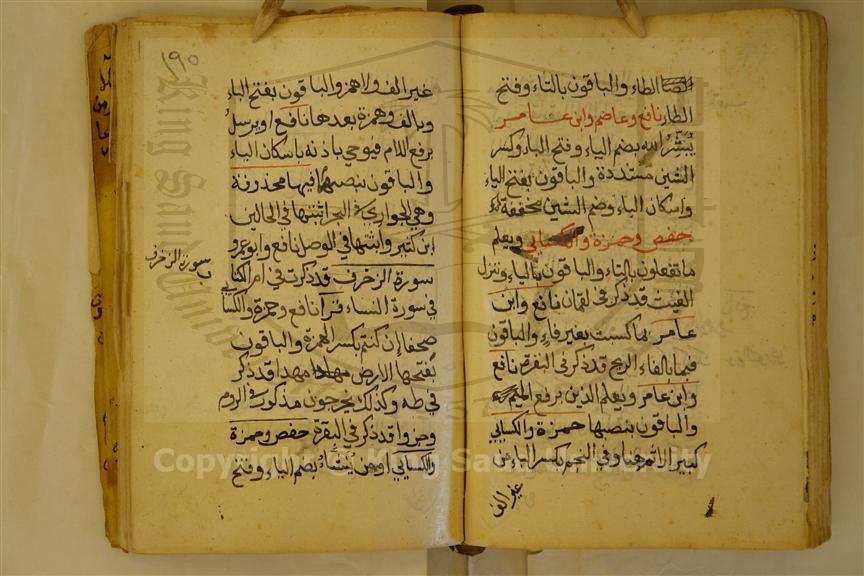 الطاء والباقون بالتاء وفتح
الطاء نافع وعاصم وابن عامر
يُبَشِّرُ الله بضم الياء وفتح الباء وكسر
الشين مشددة والباقون بفتح الياء
واسكان الباء وضم الشين مخففة
حفص وحمزة والكسائي ويعلم
ما تفعلون بالتاء والباقون بالياء وننزل
الغيث قد ذكر في لقمان نافع وابن
عامر بما كسبت بغير فاء والباقون
فبما بالفاء الريح قد ذكر في البقرة نافع
وابن عامر ويعلم الذين برفع الميم
والباقون بنصبها حمزة والكسائي
كبير الاثم هنا وفي النجم بكسر الباء من
غير الف
١٩٠
غير الف ولا همز والباقون بفتح الباء
وبالف وهمزة بعدها نافع او يرسل
برفع اللام فيوحي باذنه باسكان الياء
والباقون بنصبهما فيها محذوفة
وهي الجواري في البحر اثبتها في الحالين
ابن كثير واثبتها في الوصل نافع وابو عمرو
سورة الزخرف قد ذكرت في ام الكتاب
في سورة النساء قرأ نافع وحمزة والكسائي
صفحا إن كنتم بكسر الهمزة والباقون
بفتحها الارض مهدا قد ذكر
في طه وكذلك يخرجون مذكور في الروم
وجزوا قد ذكر في البقرة حفص وحمزة
والكسائي اومن يُنَشَّاءُ بضم الياء وفتح
سورة الزخرف
Copyright © King Saud University